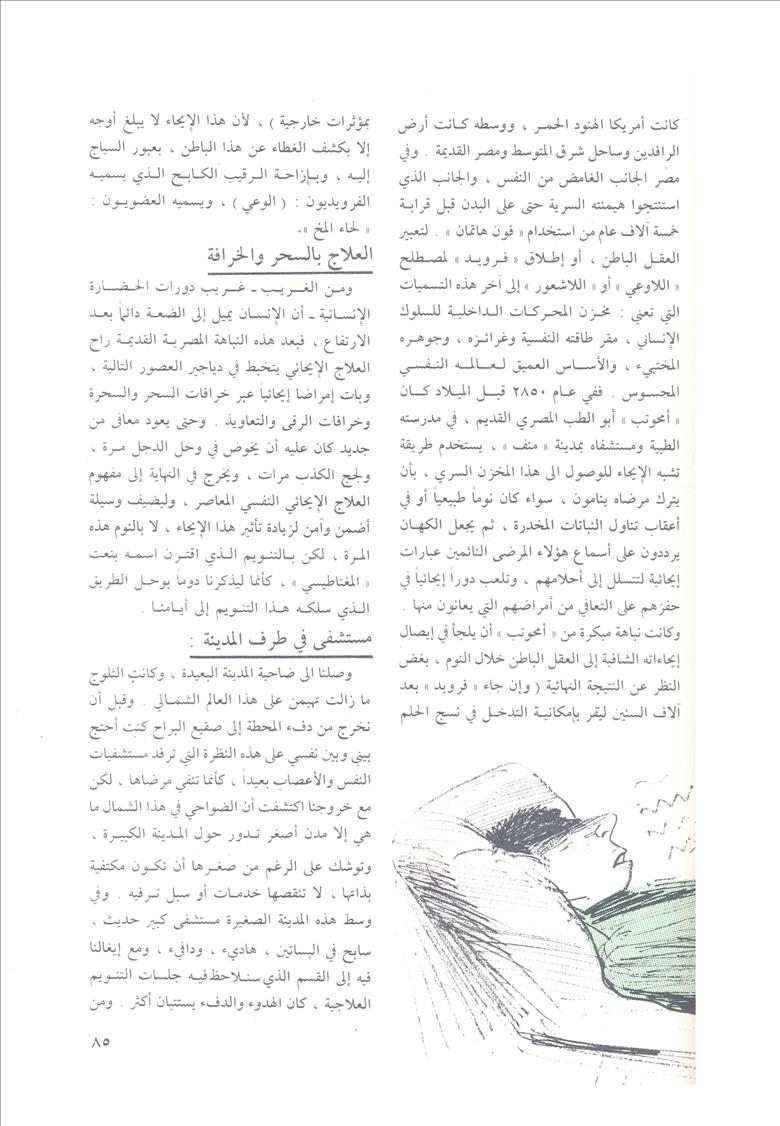 كانت أمريكا الهنود الحمر ، ووسطه كانت أرض
الرافدين وساحل شرق المتوسط ومصر القديمة . وفي
مصر الجانب الغامض من النفس ، والجانب الذي
استنتجوا هيمنته السرية حتى على البدن قبل قرابة
خمسة آلاف عام من استخدام « فون هاتمان » . لتعبير
العقل الباطن ، أو إطلاق « فرويد » لمصطلح
« اللاوعي » أو « اللاشعور » إلى آخر هذه التسميات
التي تعني : مخزن المحركات الداخلية للسلوك
الإنساني ، مقر طاقته النفسية وغرائزه ، وجوهره
المختبيء ، والأساس العميق لعالمه النفسي
المحسوس . ففي عام ٢٨٥٠ قبل الميلاد كان
« أمحوتب » أبو الطب المصري القديم ، في مدرسته
الطبية ومستشفاه بمدينة « منف » ، يستخدم طريقة
تشبه الإيحاء للوصول الى هذا المخزن السري ، بأن
يترك مرضاه ينامون ، سواء كان نوماً طبيعياً أو في
أعقاب تناول النباتات المخدرة ، ثم يجعل الكهان
يرددون على أسماع هؤلاء المرضى النائمين عبارات
إيحائية لتتسلل إلى أحلامهم ، وتلعب دوراً إيحائياً في
حفزهم على التعافي من أمراضهم التي يعانون منها .
وكانت نباهة مبكرة من « أمحوتب » أن يلجأ في إيصال
إيحاءاته الشافية إلى العقل الباطن خلال النوم ، بغض
النظر عن النتيجة النهائية ( وإن جاء « فرويد » بعد
آلاف السنين ليقر بإمكانية التدخل في نسج الحلم
بمؤثرات خارجية ) ، لأن هذا الإيحاء لا يبلغ أوجه
إلا بكشف الغطاء عن هذا الباطن ، بعبور السياج
إليه ، وبإزاحة الرقيب الكابح الذي يسميه
الفرويديون : ( الوعي ) ، ويسميه العضويون :
« لحاء المخ ».
العلاج بالسحر والخرافة
ومن الغريب - غريب دورات الحضارة
الإنسانية - أن الإنسان يميل إلى الضعة دائماً بعد
الارتفاع ، فبعد هذه النباهة المصرية القديمة راح
العلاج الإيحائي يتخبط في دياجير العصور التالية ،
وبات إمراضا إيحائياً عبر خرافات السحر والسحرة
وخرافات الرقى والتعاويذ . وحتى يعود معافى من
جديد كان عليه أن يخوض في وحل الدجل مرة ،
ولجج الكذب مرات ، ويخرج في النهاية إلى مفهوم
العلاج الإيحائي النفسي المعاصر ، وليضيف وسيلة
أضمن وآمن لزيادة تأثير هذا الإيحاء ، لا بالنوم هذه
المرة ، لكن بالتنويم الذي اقترن اسمه بنعت
« المغناطيسي » ، كأنما ليذكرنا دوماً بوحل الطريق
الذي سلكه هذا التنويم إلى أيامنا .
مستشفى في طرف المدينة :
وصلنا الى ضاحية المدينة البعيدة ، وكانت الثلوج
ما زالت تهيمن على هذا العالم الشمالي . وقبل أن
نخرج من دفء المحطة إلى صقيع البراح كنت أحتج
بيني وبين نفسي على هذه النظرة التي ترفد مستشفيات
النفس والأعصاب بعيداً ، كأنما تنفي مرضاها ، لكن
مع خروجنا اكتشفت أن الضواحي في هذا الشمال ما
هي إلا مدن أصغر تدور حول المدينة الكبيرة ،
وتوشك على الرغم من صغرها أن تكون مكتفية
بذاتها ، لا تنقصها خدمات أو سبل ترفيه . وفي
وسط هذه المدينة الصغيرة مستشفى كبير حديث ،
سابح في البساتين ، هاديء ، ودافيء ، ومع إيغالنا
فيه إلى القسم الذي سنلاحظ فيه جلسات التنويم
العلاجية ، كان الهدوء والدفء يستتبان أكثر . ومن
٨٥